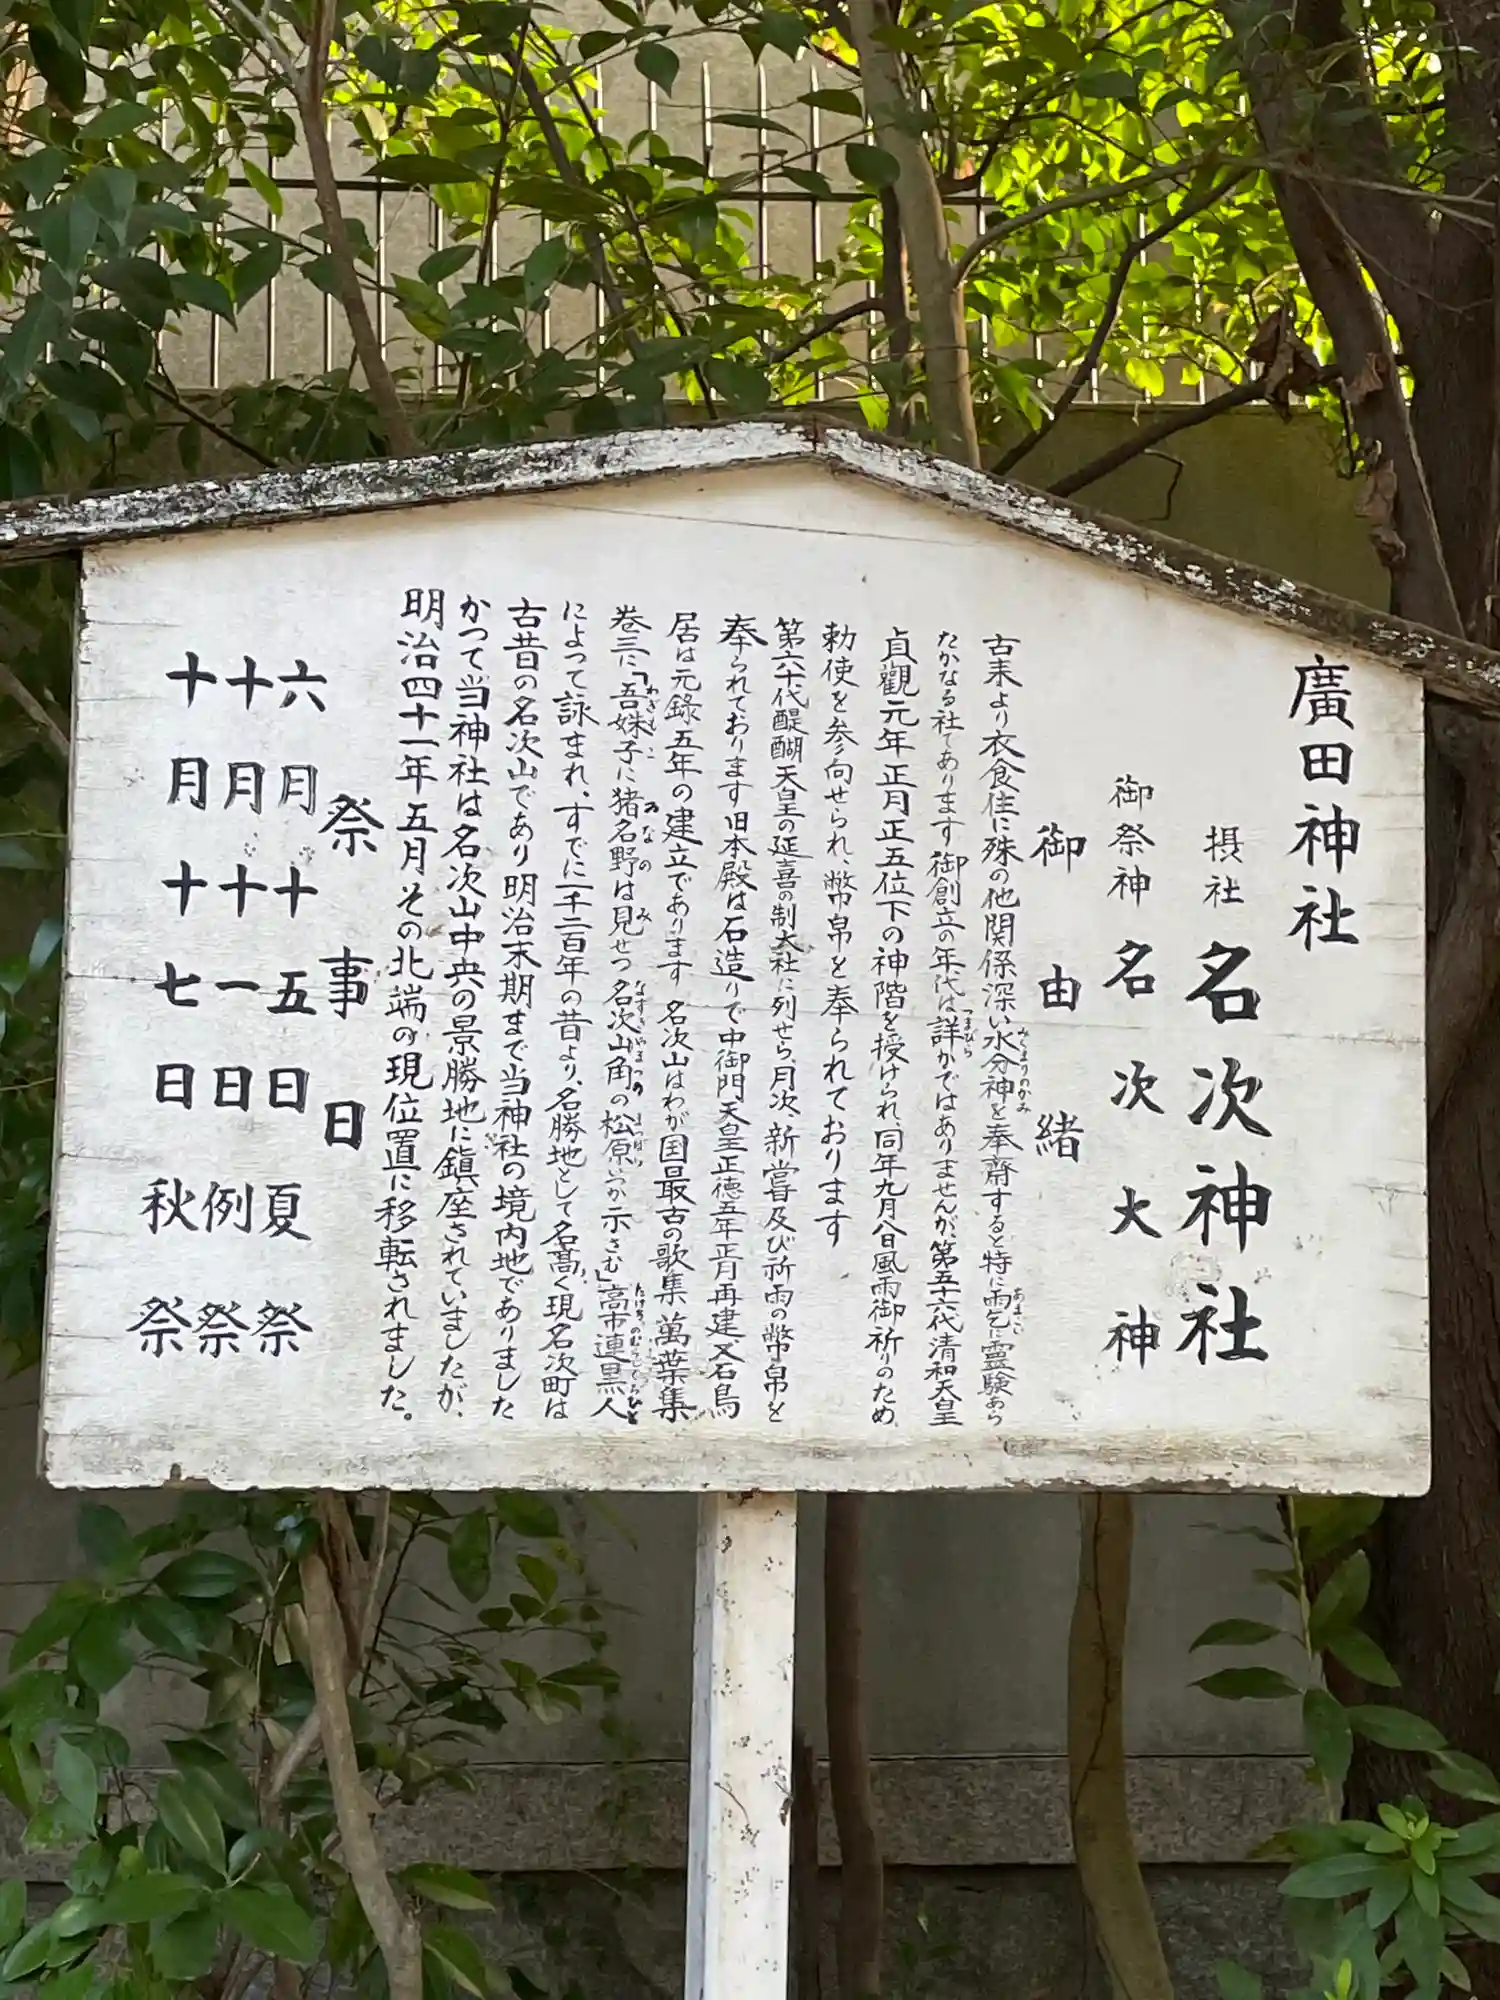 廣田神社
摂社 名次神社
御祭神 名次大神
御由緒
古来より衣食住に殊の他関係深い水分神を奉齋すると特に雨乞に霊験あら
たかなる社であります御創立の年代は詳かではありませんが、第五十六代清和天皇
貞觀元年正月正五位下の神階を授けられ、同年九月八日風雨御祈りのため、
勅使を参向せられ、幣帛を奉られております
第六十代醍醐天皇の延喜の制大社に列せら、月次、新嘗及び祈雨の幣帛を
奉られております旧本殿は石造りで中御門天皇正徳五年正月再建又石鳥
居は元錄五年の建立であります 名次山はわが国最古の歌集 萬葉集
巻三に「吾姝子に猪名野は見せつ名次山角の松原いつか示さむ」高市連黒人
によって詠まれ、すでに一千二百年の昔より、名勝地として名髙く現名次町は
古昔の名次山であり明治末期まで当神社の境内地でありました
かつて当神社は名次山中央の景勝地に鎭座されていましたが、
明治四十一年五月その北端の現位置に移転されました。
祭事日
六月十五日 夏祭
十月十一日 例祭
十月十七日 秋祭